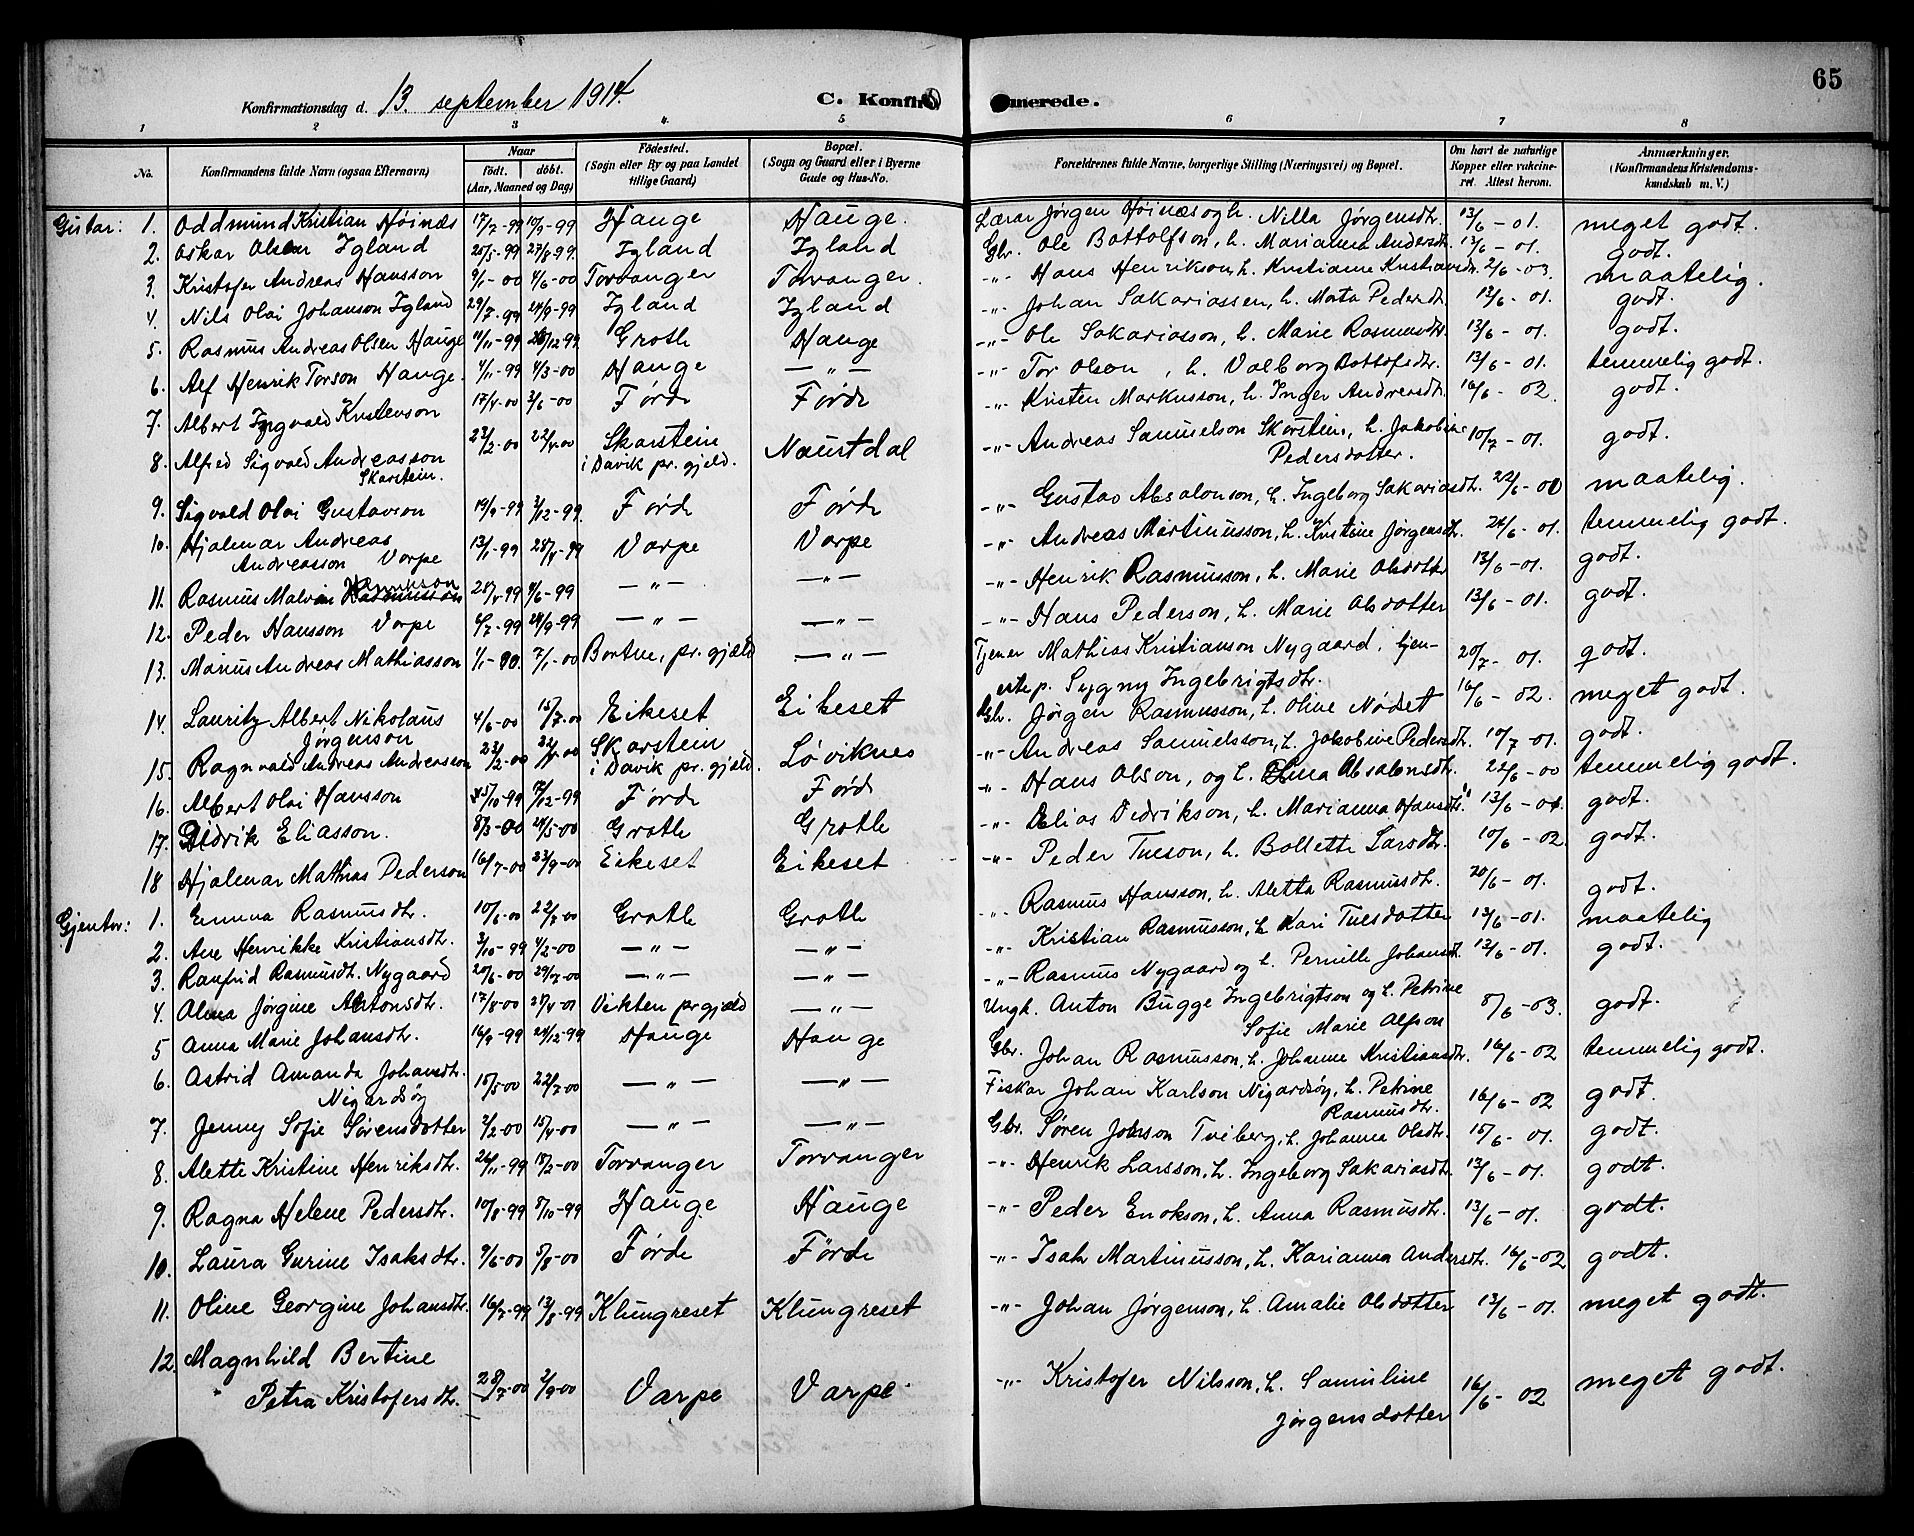 65
Konfirmationsdag d. 13. september 1914. C. Konfirmerede.
1 2 3 4 5 6 7 8
No. Konfirmandens fulde Navn (ogsaa Efternavn) Naar födt. döbt. (Aar, Maaned og Dag) Födested. (Sogn eller By og paa Landet tillige Gaard) Bopæl. (Sogn og Gaard eller i Byerne Gade og Hus-No. Forældrenes fulde Navne, borgerlige Stilling (Næringsvei) og Bopæl. Om havt de naturlige Kopper eller vakcineret. Attest herom. Anmærkninger. (Konfirmandens Kristendomskundskab m. V.)
Gutar: 1. Oddmund Kristian Høinæs 17/7-99 10/9-99 Hauge Hauge. Lærar Jørgen Høinæs og h. Nilla Jørgensdtr. 13/6-01. meget godt.
2. Oskar Olsen Igland 25/5-99 27/8 99. Igland Igland Gbr. Ole Bottolfson, h. Marianna Andersdtr. 13/6-01. godt.
3. Kristofer Andreas Hansson 9/1-00 4/6-00 Torvanger Torvanger. -"- Hans Henrikson, h. Kristianne Kristiansdtr. 2/6-03. maatelig.
4. Nils Olai Johanson Igland 29/7-99 24/9-99 Igland Igland -"- Johan Sakariassen, h. Marta Pedersdt. 13/6-01. godt.
5. Rasmus Andreas Olsen Hauge 11/11-99 26/12 99 Grotle Hauge -"- Ole Sakariasson, h. Marie Rasmusdtr. 13/6-01. godt.
6. Alf Henrik Torson Hauge. 4/11-99 4/3-00 Hauge -"- -"- Tor Olson, h. Valborg Bottolfsdtr. 13/6-01. temmelig godt.
7. Albert Ingvald Kristenson 17/4-00 3/6-00 Førde Førde -"- Kristen Markusson, h. Inger Andreasdtr. 16/6-02. godt.
8. Alfred Sigvald Andreasson Skarstein. 23/2-00 22/4-00 Skarstein i Davik pr. gjeld. Naustdal -"- Andreas Samuelson Skarstein, h. Jakobine Pedersdotter. 10/7-01. godt.
9. Sigvald Olai Gustavson 19/9-99 3/12-99. Førde Førde -"- Gustav Absalonson, h. Ingeborg Sakariasdt. 22/6-00 maatelig.
10. Hjalmar Andreas Andreasson Varpe 13/1-99 28/4-99 Varpe Varpe -"- Andreas Martinusson, h. Kristine Jørgensdt. 26/6-01. temmelig godt.
11. Rasmus Malvin Henrikson 28/4-99 4/6-99 -"- -"- -"- Henrik Rasmusson, h. Marie Olsdotter 13/6-01. godt.
12. Peder Hansson Varpe 6/7-99 24/9-99 -"- -"- -"- Hans Pederson, h. Marie Olsdotter 13/6-01. godt.
13. Marius Andreas Mathiasson 1/1-00. 7/1-00 Bortne, pr. gjæld -"- Tjener Mathias Kristianson Nygaard, tjenestep. Sygny Ingebrigtsdtr. 20/7-01. godt.
14. Lauritz Albert Nikolaus Jørgenson 4/6-00 15/7-00 Eikeset Eikeset Gbr. Jørgen Rasmusson, h. Oline Nødset 16/6-02. meget godt.
15. Ragnvald Andreas Andreasson 23/2-00 22/4-00 Skarstein i Davik pr. gjæld. Løviknes -"- Andreas Samuelsson, h. Jakobine Pedersdt. 10/7-01. godt.
16. Albert Olai Hansson 15/10-99 17/12-99 Førde Førde -"- Hans Olson, og h. Elina Absalonsdt. 22/6-00 temmelig godt.
17. Didrik Eliasson. 8/3-00 24/5-00 Grotle Grotle -"- Elias Didrikson, h. Marianna Hansdtr. 13/6-01. godt.
18 Hjalmar Mathias Pederson 16/7-00 23/9-00 Eikeset Eikeset -"- Peder Tueson, h. Bollette Larsdtr. 10/6-02. godt.
Gjentur: 1. Emma Rasmusdtr. 10/6-00 22/7-00 Grotle Grotle -"- Rasmus Hansson, h. Aletta Rasmusdtr. 20/6-01. godt.
2. Ane Henrikke Kristiansdtr. 3/10-99 4/2-00 -"- -"- -"- Kristian Rasmusson, h. Kari Tuesdotter 13/6-01. maatelig
3. Ranfrid Rasmusdt. Nygaard 20/6-00 29/7-00 -"- -"- -"- Rasmus Nygaard og h. Pernille Johansdt. 13/6-01. godt.
4. Alma Jørgine Antonsdtr. 17/8-00 28/4-01 Vikten pr gjæld -"- Ungk. Anton Bugge Ingebrigtson og h. Petrine Sofie Marie Alfson 8/6-03. godt.
5 Anna Marie Johansdtr. 16/9-99 24/12-99 Hauge Hauge Gbr. Johan Rasmusson, h. Johanne Kristiansdtr. 16/6-02 temmelig godt.
6. Astrid Amanda Johansdtr. Nigardsøy 15/5-00 22/7-00 -"- -"- Fiskar Johan Karlson Nigardsøy, h. Petrine Rasmusdtr. 16/6-02 godt.
7. Jenny Sofie Sørensdotter 3/2-00 15/4-00 -"- -"- Gbr. Søren Johnson Tviberg, h. Johanna Olsdtr. 15/6-01. godt.
8. Alette Kristine Henriksdtr. 26/11-99 18/2-00 Torvanger Torvanger -"- Henrik Larsson, h. Ingeborg Sakariasdtr. 13/6-01. godt.
9. Ragna Helene Pedersdtr. 10/8-99 8/10-99 Hauge Hauge -"- Peder Enokson, h. Anna Rasmusdtr. 13/6-01. godt.
10. Laura Gurine Isaksdtr. 9/6-00 5/8-00 Førde Førde -"- Isak Martinusson, h. Karianna Andersdtr. 16/6-02 godt.
11. Oline Georgine Johansdtr. 16/7-99 13/8-99 Klungreset Klungreset -"- Johan Jørgenson, h. Amalie Olsdotter 13/6-01. meget godt.
12. Magnhild Bertine Petra Kristofersdtr. 28/7-00 2/9-00 Varpe Varpe -"- Kristofer Nilsson, h. Samuline Jørgensdotter 16/6-02 meget godt.